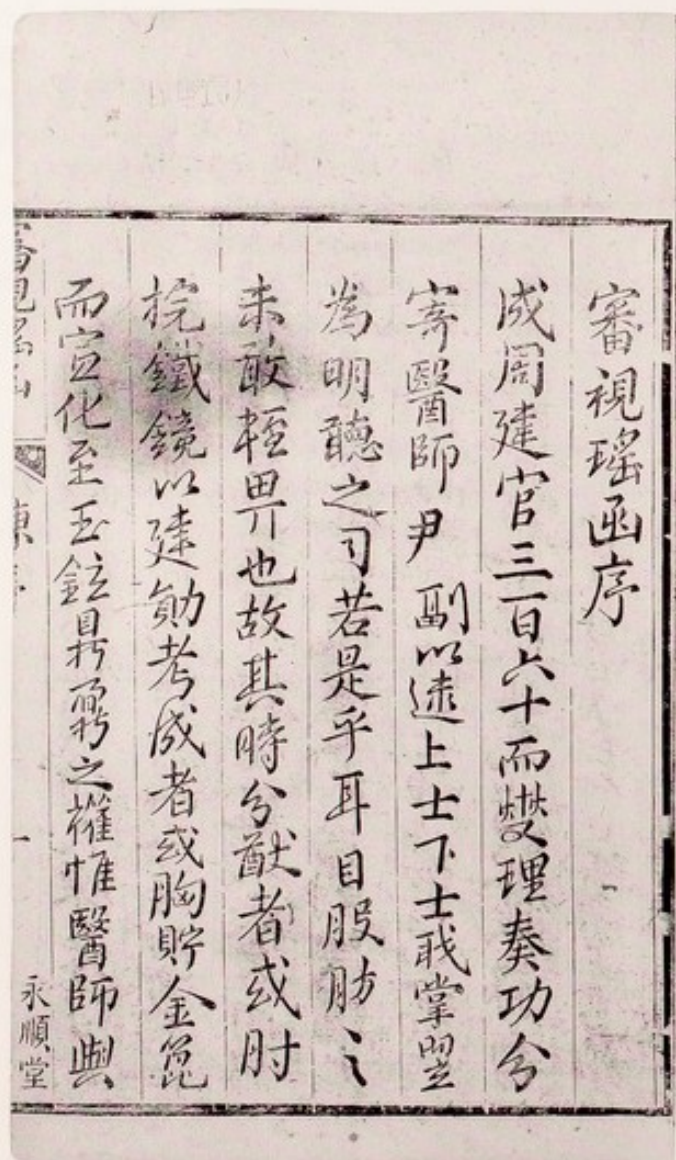 審視瑤函序
成周建官三百六十而爕理奏功分
寄醫師尹 副以逮上士下士職掌翌
為明聽之司若是乎耳目股肱之
未敢輕畀也故其時分猷者或肘
捖鐵鏡以建勛考成者或胸貯金篦
而宣化至玉鉉鼎鼐之權惟醫師與
審視瑤函
序
一
永順堂